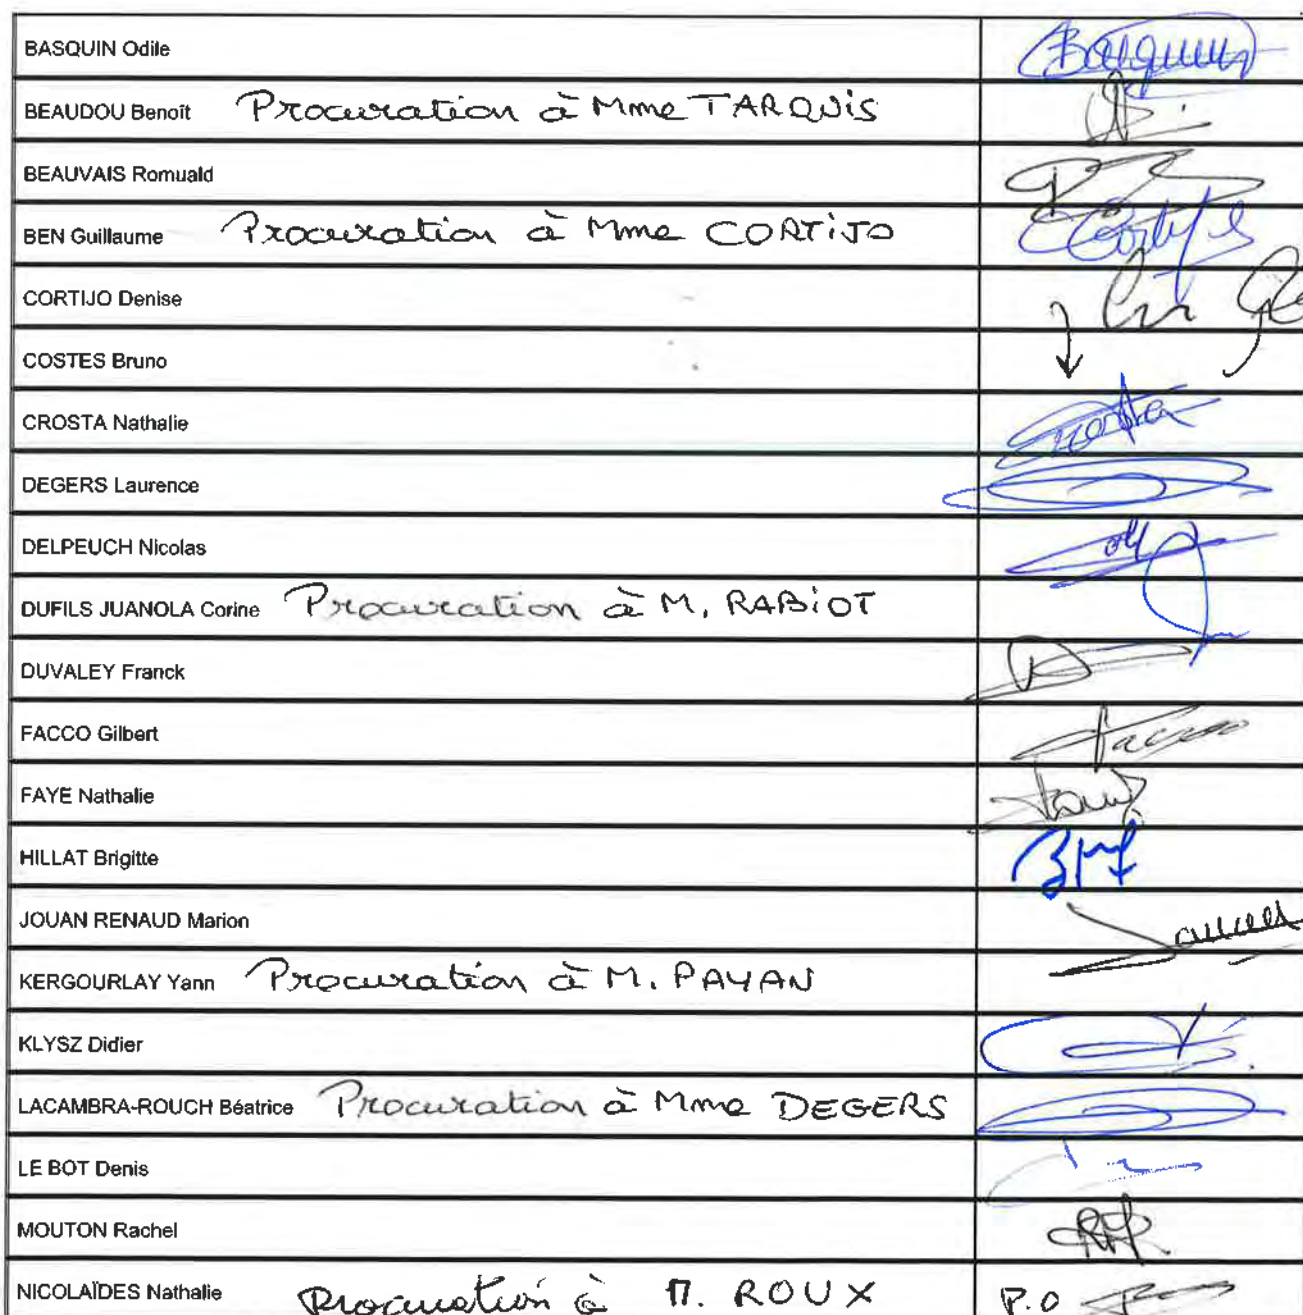 BASQUIN Odile Basquin
BEAUDOU Benoît Procuration à Mme TARQUIS
BEAUVAIS Romuald
BEN Guillaume Procuration à Mme CORTIJO Cortijo
CORTIJO Denise
COSTES Bruno
CROSTA Nathalie Crosta
DEGERS Laurence
DELPEUCH Nicolas
DUFILS JUANOLA Corine Procuration à M. RABIOT
DUVALEY Franck
FACCO Gilbert Facco
FAYE Nathalie
HILLAT Brigitte
JOUAN RENAUD Marion
KERGOURLAY Yann Procuration à M. PAYAN
KLYSZ Didier
LACAMBRA-ROUCH Béatrice Procuration à Mme DEGERS
LE BOT Denis
MOUTON Rachel
NICOLAÏDES Nathalie Procuration à M. ROUX P.O